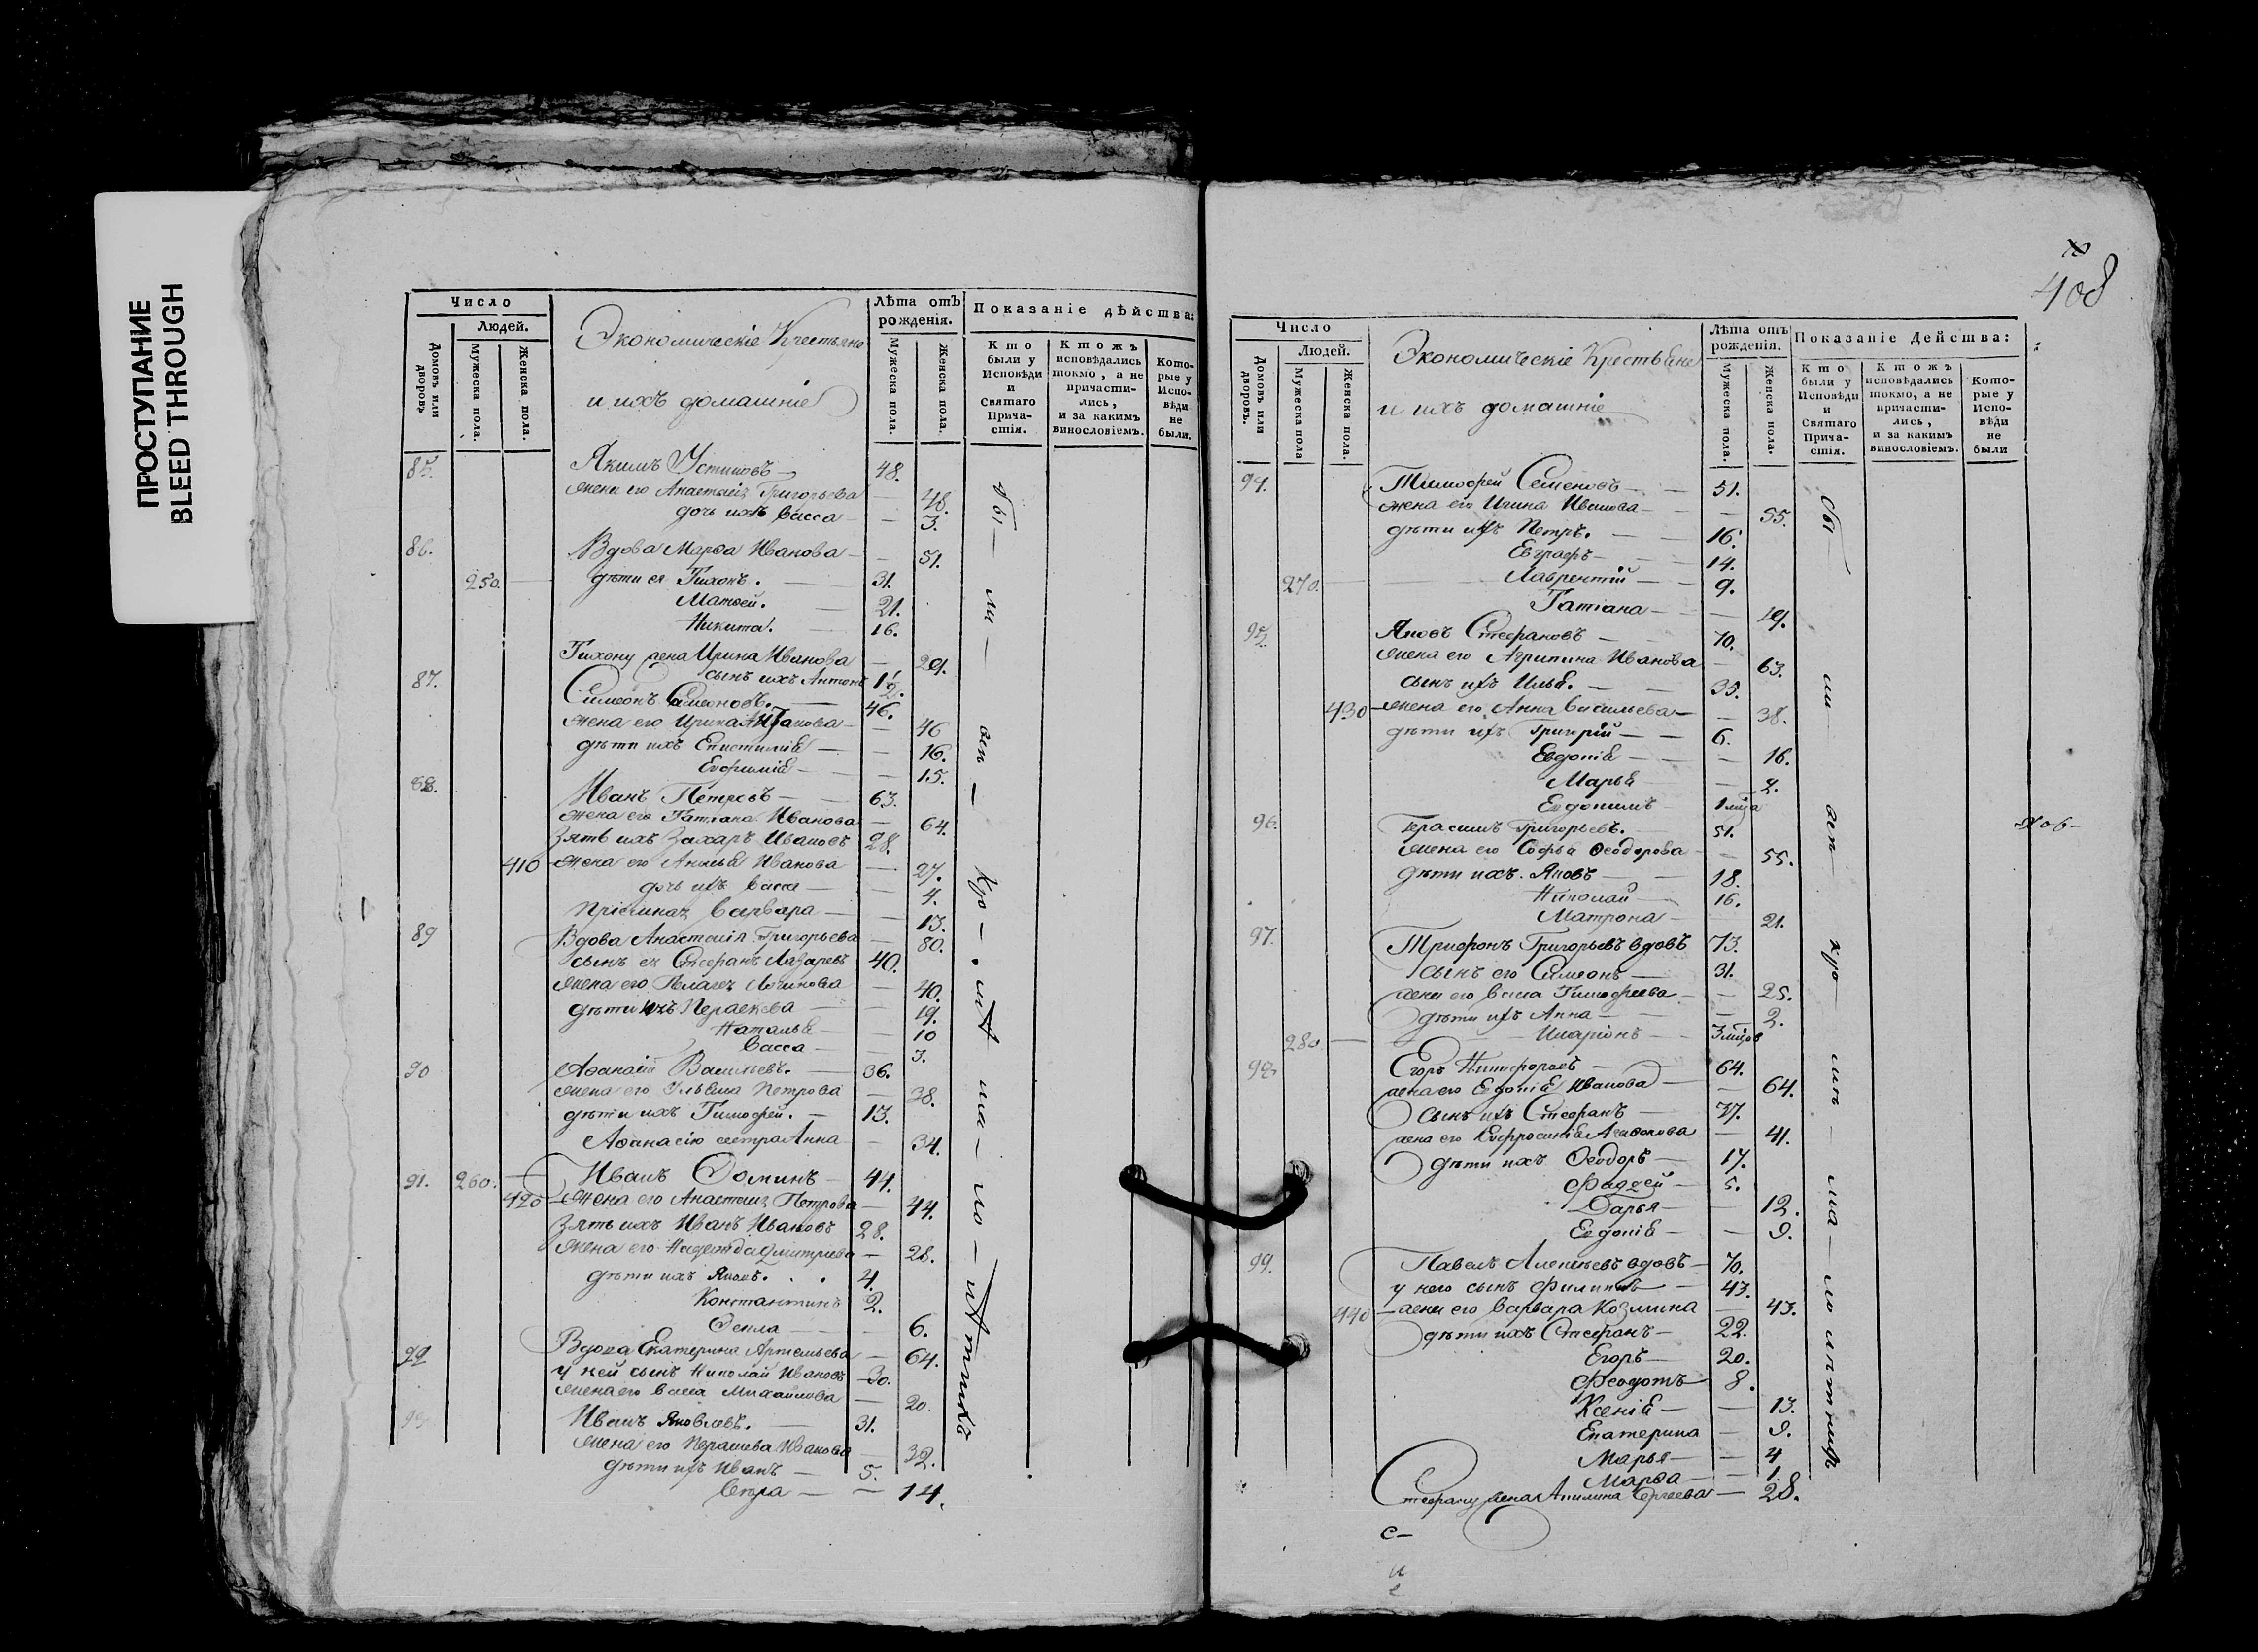 ПРОСТУПАНИЕ
BLEED THROUGH
408
Число
Людей.
Домовъ или дворовъ.
Мужеска пола.
Женска пола.
Экономическіе Крестьяне
и ихъ домашніе
Лѣта отъ рожденія.
Мужеска пола.
Женска пола.
Показаніе дѣйства:
Кто были у Исповѣди и Святаго Причастія.
Ктожъ исповѣдались токмо, а не причастились, и за какимъ винословіемъ.
Которые у Исповѣди не были.
85. Якимъ Устиновъ — 48.
жена его Анастасія Григорьева — 48.
дочь ихъ Васса — 3.
86. Вдова Марѳа Иванова — 51.
250. дѣти ея Тихонъ. — 31.
Матвей. — 21.
Никита. — 16.
Тихону жена Ирина Иванова — 29.
сынъ ихъ Антонъ 1 1/2.
87. Симеонъ Симеоновъ. — 46.
жена его Ирина — 46
дѣти ихъ Епистимія — 16.
Евфимія — 15.
88. Иванъ Петровъ — 63.
жена его Татіана Иванова — 64.
Зять ихъ Захаръ Ивановъ 28.
410 жена его Иванова — 27.
дочь ихъ Васса — 4.
Варвара — 13.
89 Вдова Анастасія Григорьева — 80.
сынъ ея Стефанъ Лазаревъ 40.
жена его Пелагея — 40.
дѣти ихъ Параскева — 19.
Наталья — 10
Васса — 3.
90 Аѳанасій Васильевъ. — 36.
жена его Ульяна Петрова — 38.
дѣти ихъ Тимофей. — 13.
Аѳанасію сестра Анна — 34.
91. 260. Иванъ Ѳоминъ — 44.
420 жена его Анастасія Петрова — 44.
Зять ихъ Иванъ Ивановъ 28.
жена его Надежда Дмитріева — 28.
дѣти ихъ Яковъ. 4.
Константинъ 2.
Ѳекла — 6.
92 Вдова Екатерина Артемьева — 64.
у ней сынъ Николай Ивановъ 30.
жена его Васса Михайлова — 20.
93 Иванъ Яковлевъ. — 31.
жена его Параскева Иванова — 32.
дѣти ихъ Иванъ — 5.
— 14.
Число
Людей.
Домовъ или дворовъ.
Мужеска пола
Женска пола.
Экономическіе Крестьяне
и ихъ домашніе
Лѣта отъ рожденія.
Мужеска пола.
Женска пола.
Показаніе Действа:
Кто были у Исповѣди и Святаго Причастія.
Ктожъ исповѣдались токмо, а не причастились, и за какимъ винословіемъ.
Которые у Исповѣди не были
94. Тимофей Семеновъ — 51.
жена его Ирина Иванова — 55.
дѣти ихъ Петръ. — 16.
Евграфъ — 14.
270. Лаврентій — 9.
Татіана — 19.
95. Яковъ Стефановъ — 70.
жена его Агрипина Иванова — 63.
сынъ ихъ Илья. — 35.
430 жена его Анна Васильева — 38.
дѣти ихъ Григрій — 6.
Евдокія — 16.
Марья — 2.
Евдокимъ 1 мца
96. Герасимъ Григорьевъ. 51.
жена его Софья Ѳеодорова — 55.
дѣти ихъ Яковъ — 18.
Николай — 16.
Матрона — 21.
97. Трифонъ Григорьевъ вдовъ 73.
сынъ его Симеонъ — 31.
жена его Васса Тимофеева — 25.
дѣти ихъ Анна — 2.
280. Иларіонъ — 3 мцовъ
98. Егоръ Никифоровъ — 64.
жена его Евдокія Иванова — 64.
сынъ ихъ Стефанъ — 37.
жена его Евфросинія Агаѳонова — 41.
дѣти ихъ Ѳеодоръ — 17.
Фаддей — 5.
Дарья — 12.
Евдокія — 9.
99. Павелъ Алексѣевъ вдовъ — 70.
у него сынъ Филиппъ — 43.
440 жена его Варвара Козмина — 43.
дѣти ихъ Стефанъ — 22.
Егоръ — 20.
Феодотъ 8.
Ксенія — 13.
Екатерина — 9.
Марья — 4
Марѳа — 1.
Стефану жена Акилина Сергеева — 28.
с-